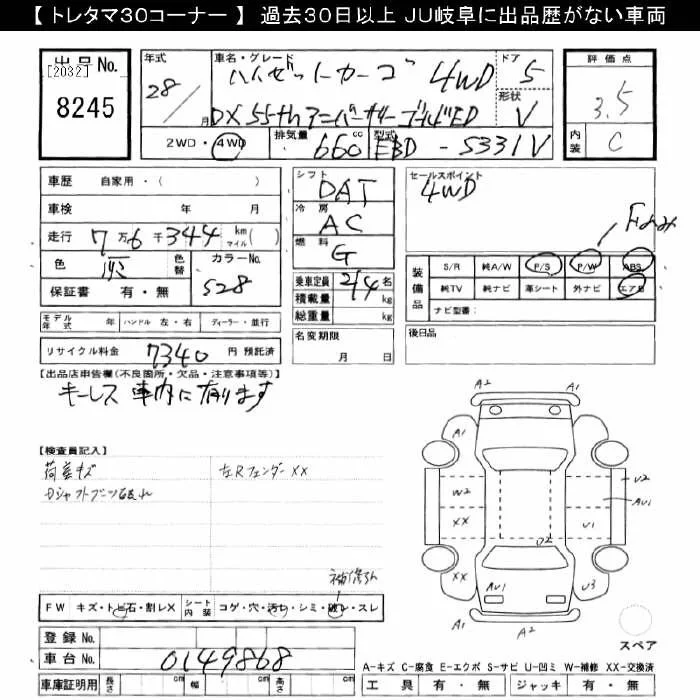 【 トレタマ30コーナー 】 過去30日以上 JU岐阜に出品歴がない車両
出品No.
[2032]
8245
年式
28/
月
車名・グレード
ハイゼットカーゴ 4WD
DX 55th アニバーサリーゴールドED
ドア
5
形状
V
評価点
3.5
内装
C
2WD・4WD
排気量
660
cc
型式
EBD - S331V
車歴 自家用・( )
車検 年 月
走行 7万6千344 km マイル( )
色
色替
カラーNo.
S28
保証書 有・無
モデル年式 年 ハンドル 左・右 ディーラー・並行
リサイクル料金 7340 円 預託済
シフト
DAT
冷房
AC
燃料
G
乗車定員 2/4 名
積載量 kg
総重量 kg
名変期限
月 日
セールスポイント
4WD
装備品
S/R 純A/W P/S P/W ABS
純TV 純ナビ 革シート 外ナビ エアB
ナビ型番:
後日品
【出品店車告欄(不良箇所・欠品・注意事項等)】
キーレス 車内に有ります
【検査員記入】
荷室キズ
左Rフェンダー XX
Dシャフトブーツ破れ
補修引
FW キズ・トビ石・割レX
シート内装 コゲ・穴・汚レ・シミ・破レ・スレ
登録No.
車台No. 0149868
車庫証明用 長さ cm 幅 cm 高さ cm
A2
A1
A1
W2
XX
U2
AU1
U1
U2
XX
AU1
U3
A1
A2
スペア
A-キズ C-腐食 E-エクボ S-サビ U-凹ミ W-補修 XX-交換済
工具 有・無 ジャッキ 有・無